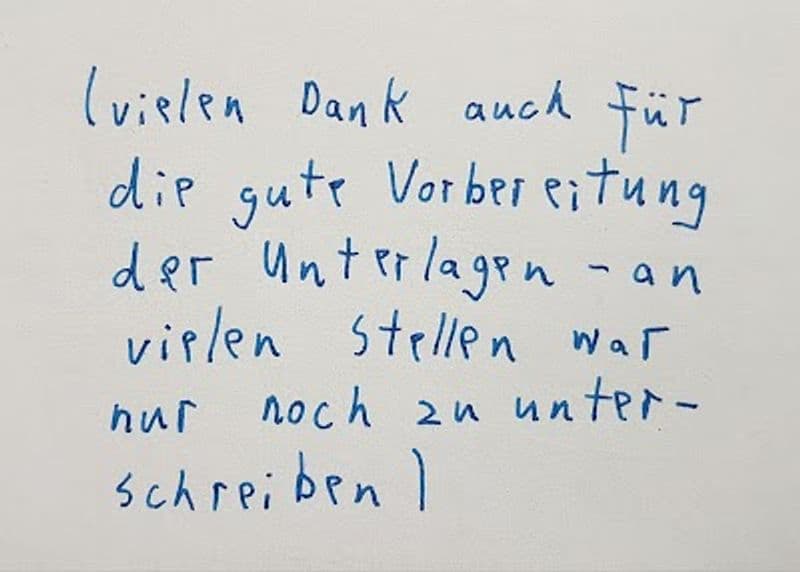 (vielen Dank auch für
die gute Vorbereitung
der Unterlagen - an
vielen Stellen war
nur noch zu unter-
schreiben)